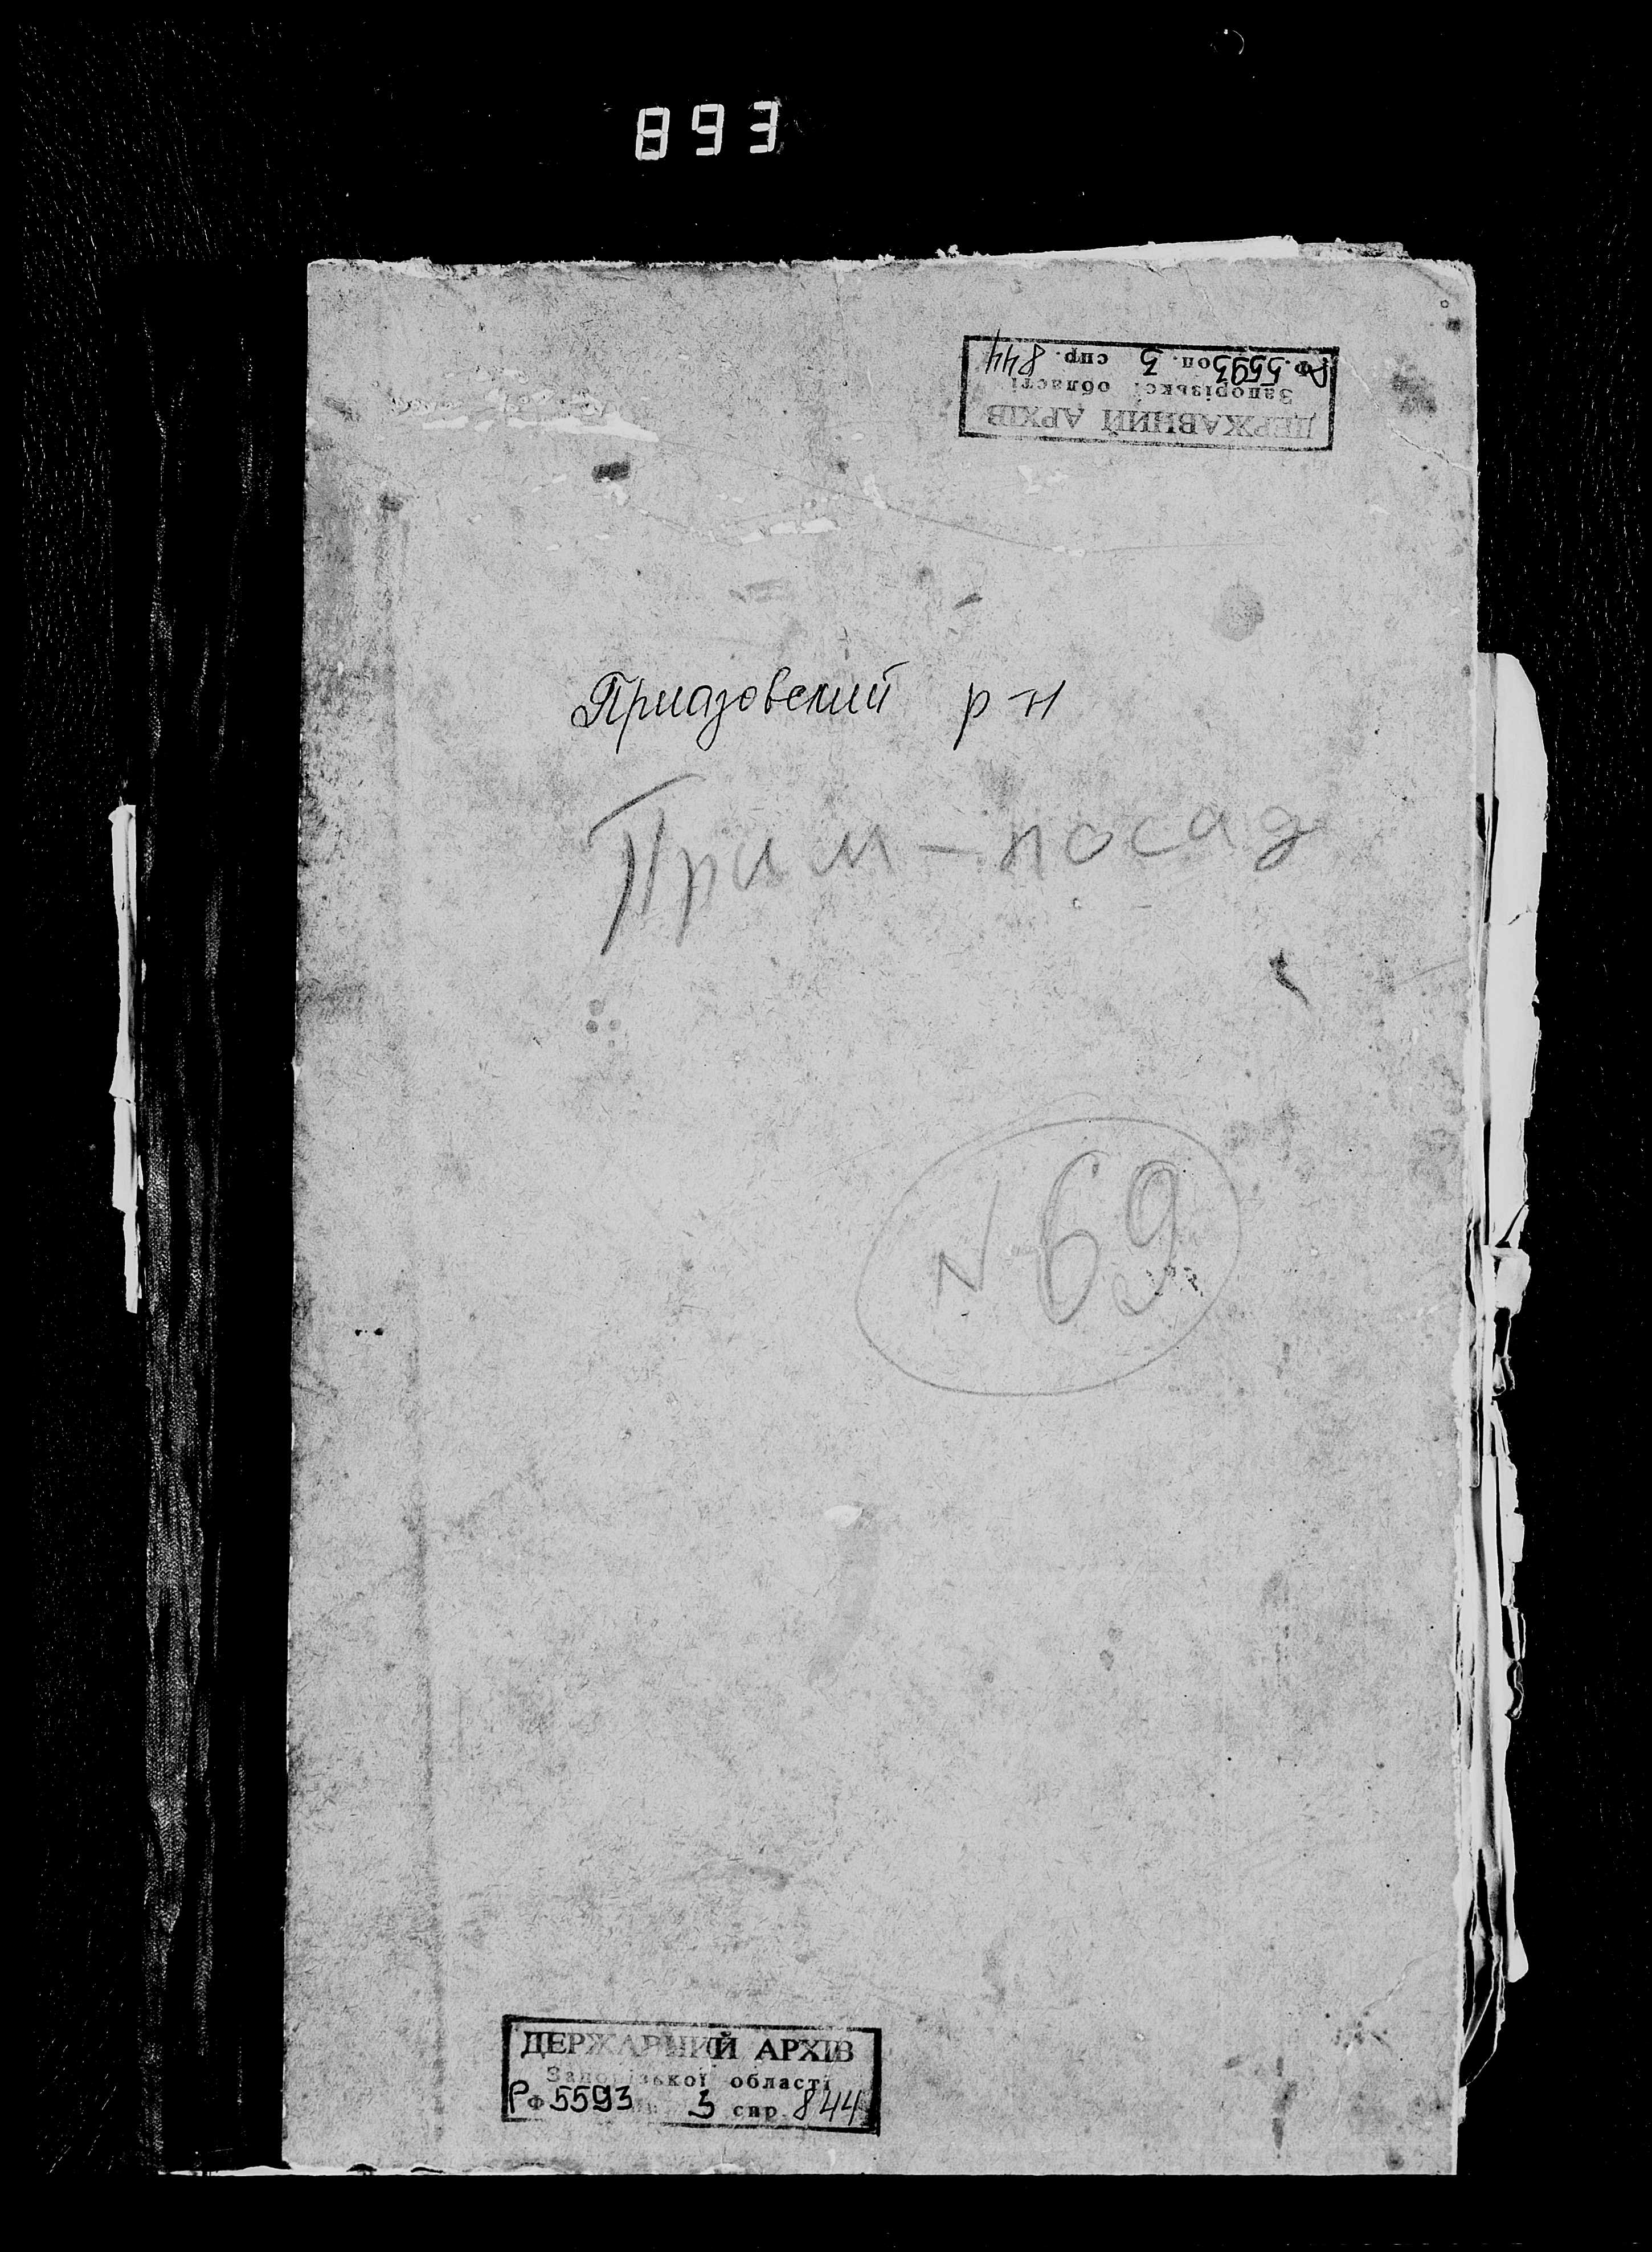 893
РФ. 5593 оп. 3 спр. 844
Запорізької області
ДЕРЖАВНИЙ АРХІВ
Приазовский р-н
Прим-посад
N 69
ДЕРЖАВНИЙ АРХІВ
Запорізької області
РФ 5593 3 спр. 844